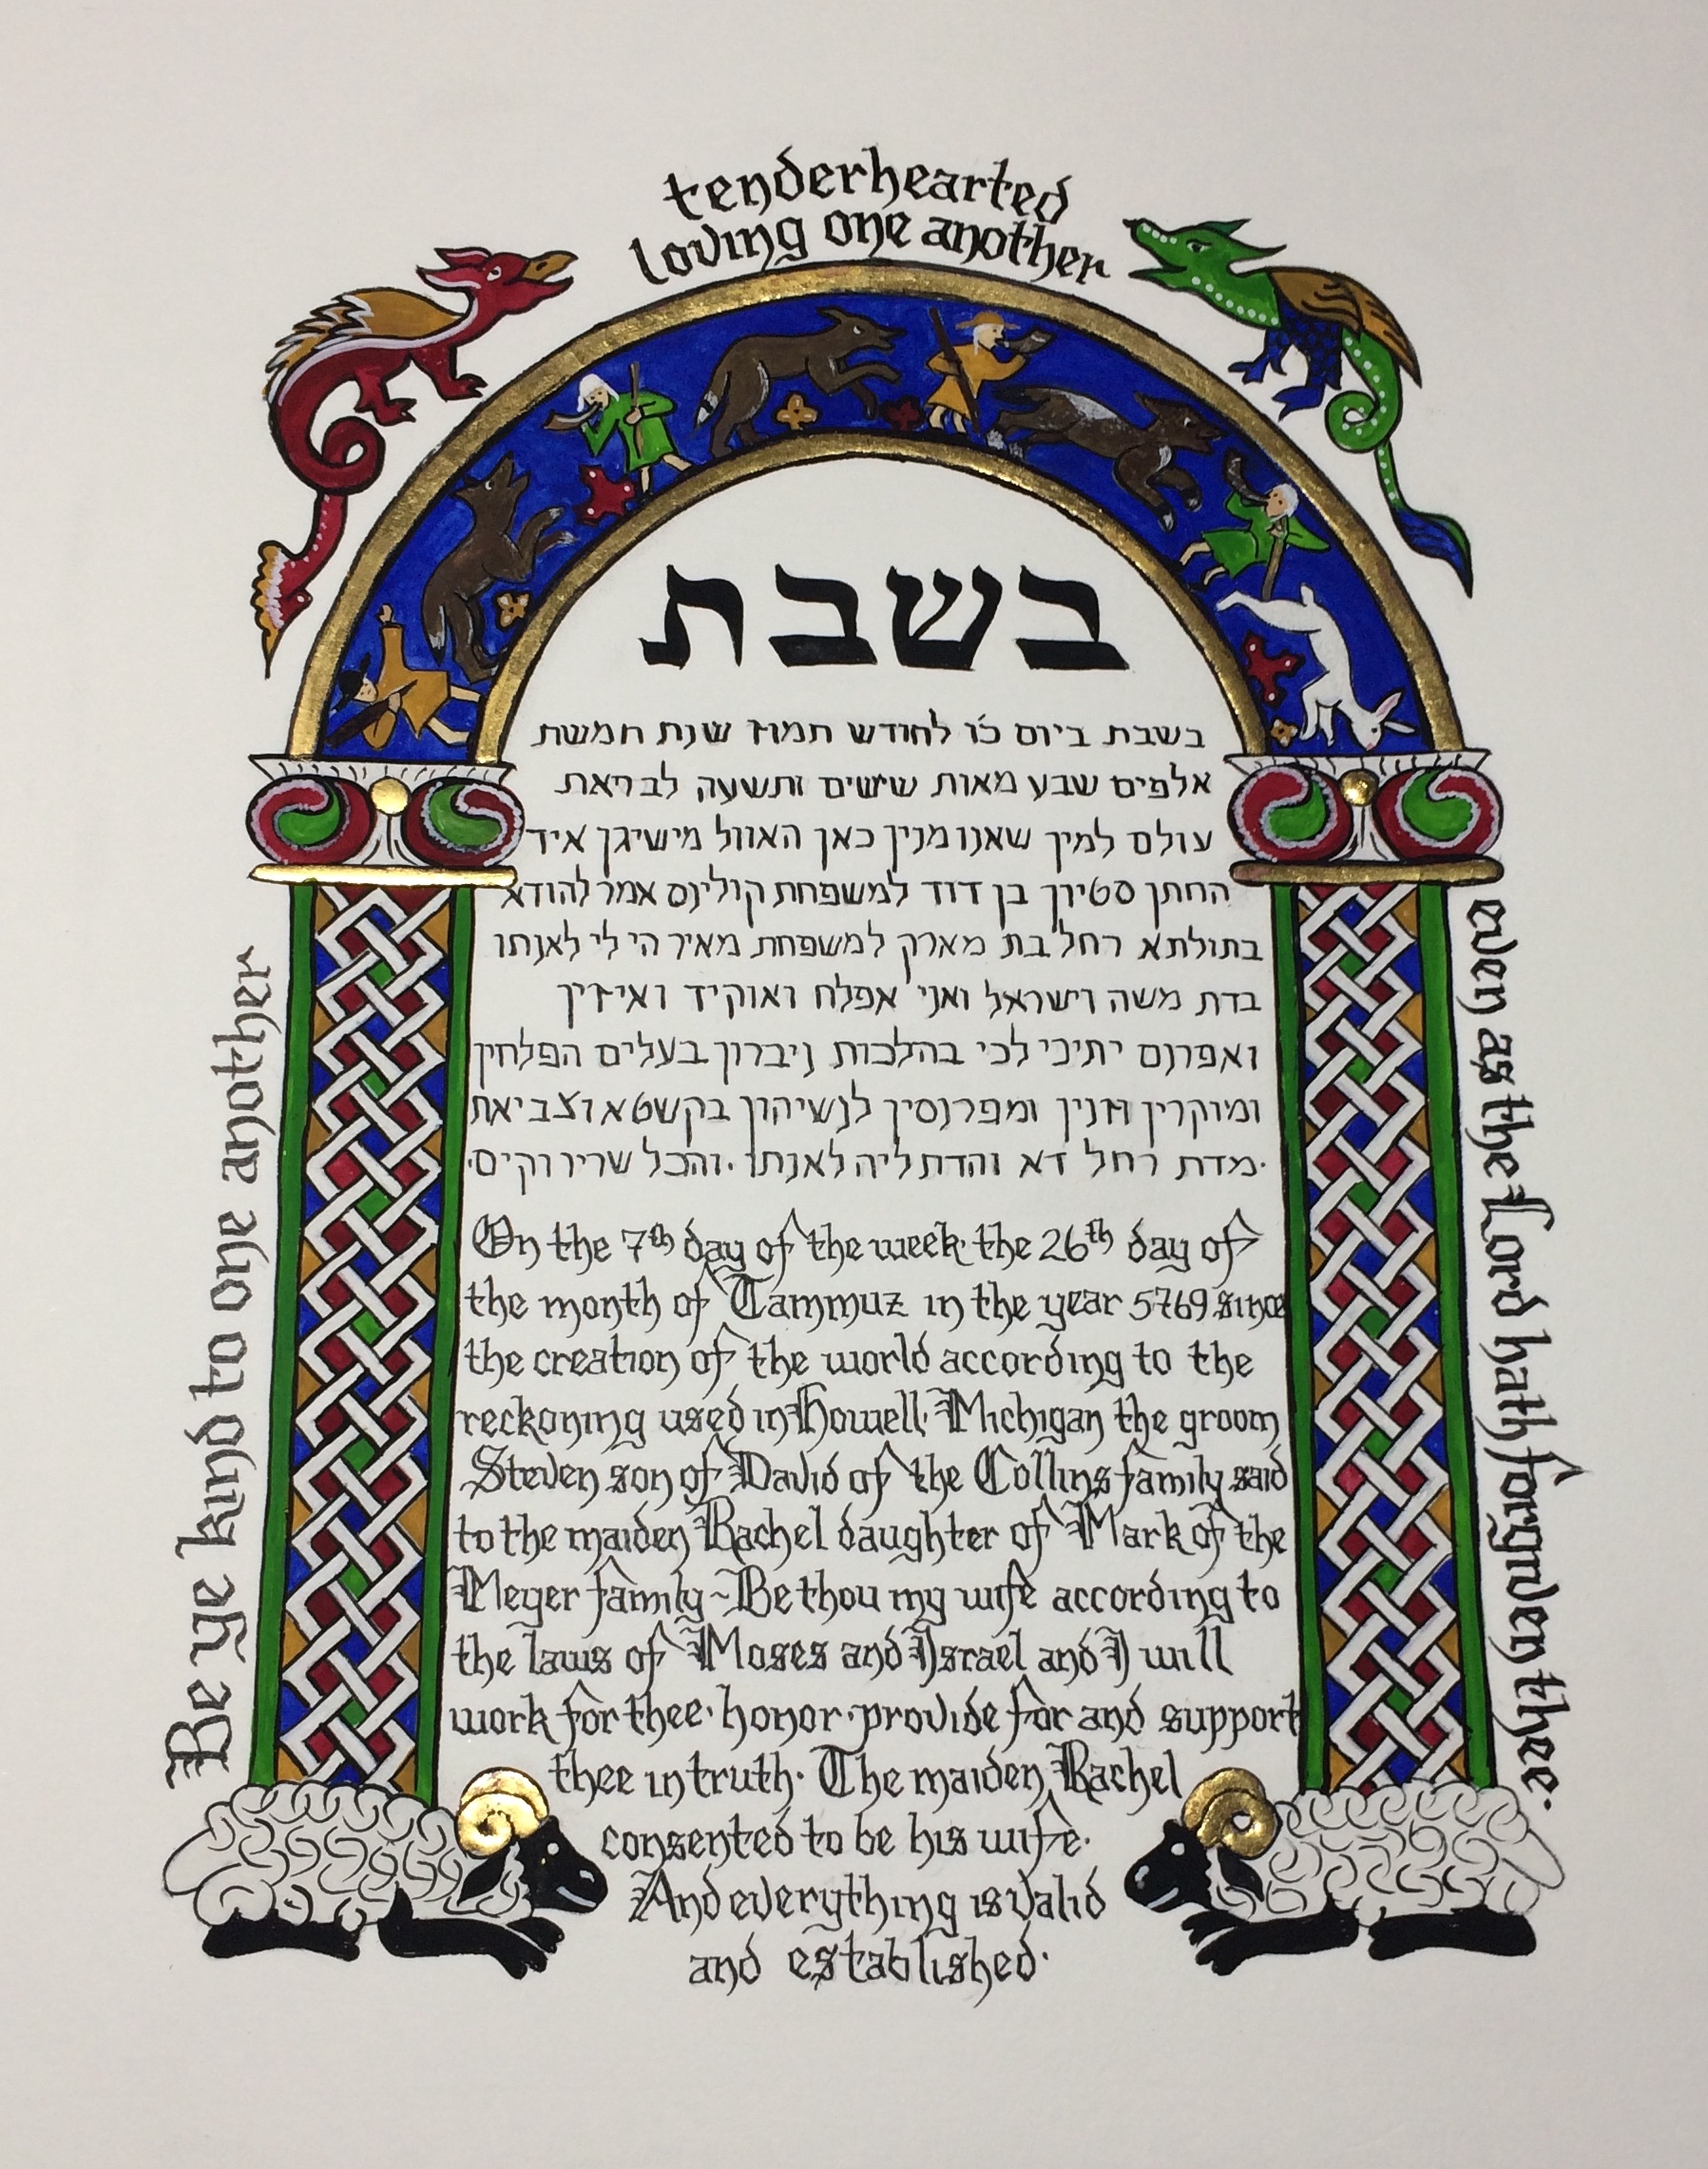 Be ye kind to one another
tenderhearted
loving one another
even as the Lord hath forgiven thee.
בשבת
בשבת ביום כ׳ו לחודש תמוז שנת חמשת
אלפים שבע מאות ששים ותשעה לבריאת
עולם למין שאנו מנין כאן האוול מישיגן איד
החתן סטיון בן דוד למשפחת קולינס אמר להודא
בתולתא רחל בת מארק למשפחת מאיר הי לי לאנתו
בדת משה וישראל ואני אפלח ואוקיד ואיזין
ואפרנס יתיכי לכי בהלכות גיברון בעלים הפלחין
ומוקרין וזנין ומפרנסין לנשיהון בקשטא וצביאת
מדת רחל דא והדת ליה לאנתו. והכל שריר וקים.
On the 7th day of the week · the 26th day of
the month of Tammuz in the year 5769 since
the creation of the world according to the
reckoning used in Howell · Michigan the groom
Steven son of David of the Collins family said
to the maiden Rachel daughter of Mark of the
Meyer family ~ Be thou my wife according to
the laws of Moses and Israel and I will
work for thee · honor · provide for and support
thee in truth · The maiden Rachel
consented to be his wife ·
And everything is valid
and established ·